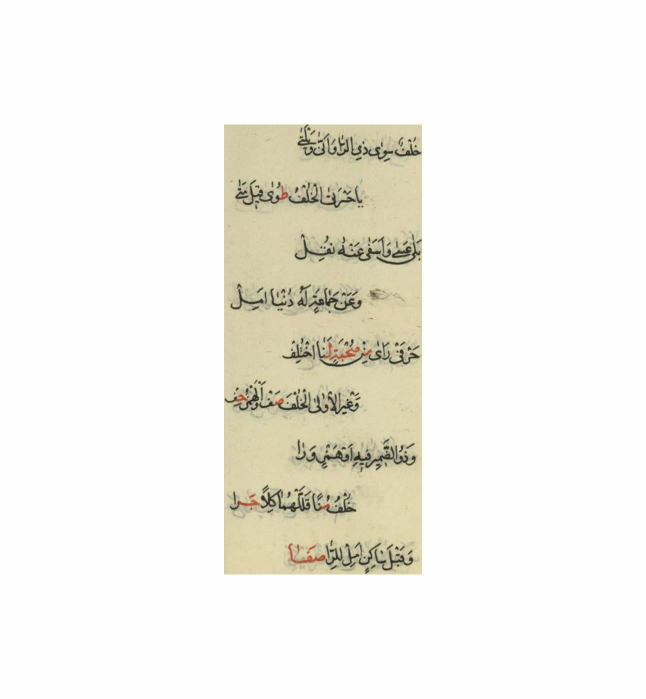 خُلْفٌ سِوٰى ذِي الرَّا وَاَنّٰى وَيْلَتٰى
يَا حَسْرَتٰى الْخُلْفُ طَوٰى قِيْلَ مَتٰى
بَلٰى عَسٰى وَاَسَفٰى عَنْهُ نُقِلْ
وَعَنْ جَمَاعَةٍ لَهُ دُنْيَا اُمِلْ
حَرْفَيْ رَاٰى مِنْ صُحْبَةٍ لَنَا اخْتُلِفْ
وَغَيْرَ الْاُوْلٰى الْخُلْفَ صِفْ وَالْهَمْزَ حِفْ
وَذُو الضَّمِيرِ فِيهِ اَوْ هَمْزٍ وَرَا
خُلْفٌ مُنًا قَلَّلَهُمَا كُلًّا جَرَا
وَقَبْلَ سَاكِنٍ اَمِلْ لِلرَّا صَفَا